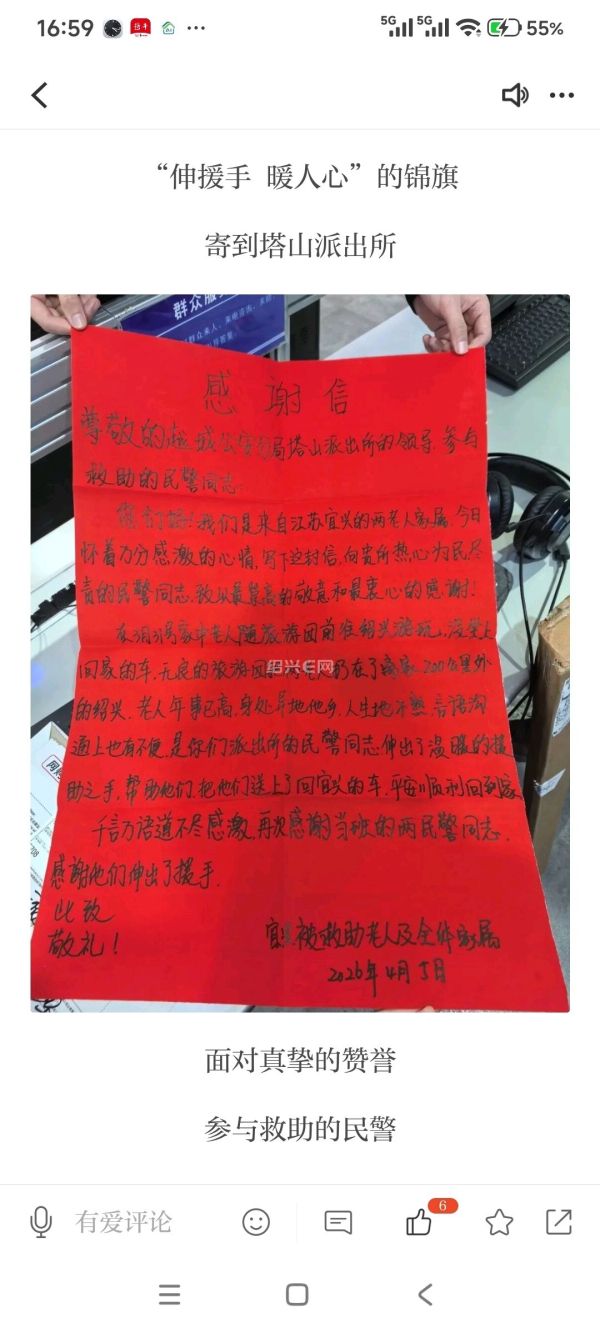 16:59
5G 5G 55%
“伸援手 暖人心”的锦旗
寄到塔山派出所
群众服
群众来人、来电咨询、求助
感谢信
尊敬的越城公安分局塔山派出所的领导、参与
救助的民警同志.
您们好!我们是来自江苏宜兴的两老人家属,今日
怀着万分感激的心情,写下这封信,向贵所热心为民尽
责的民警同志,致以最崇高的敬意和最衷心的感谢!
在3月31号家中老人随旅游团前往绍兴游玩,没坐上
回家的车.无良的旅游团 老人扔在了离家200公里外
的绍兴.老人年事已高,身处异地他乡,人生地不熟,言语沟
通上也有不便,是你们派出所的民警同志伸出了温暖的援
助之手,帮助他们.把他们送上了回宜兴的车.平安顺利回到家
千言万语道不尽感激,再次感谢当班的两民警同志,
感谢他们伸出了援手.
此致
敬礼!
宜兴被救助老人及全体家属
2026年4月5日
绍兴E网
面对真挚的赞誉
参与救助的民警
有爱评论
6